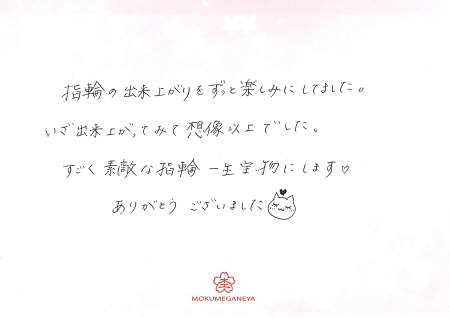 指輪の出来上がりをずっと楽しみにしてました。
いざ出来上がってみて想像以上でした。
すごく素敵な指輪 一生宝物にします♡
ありがとう ございました
MOKUMEGANEYA